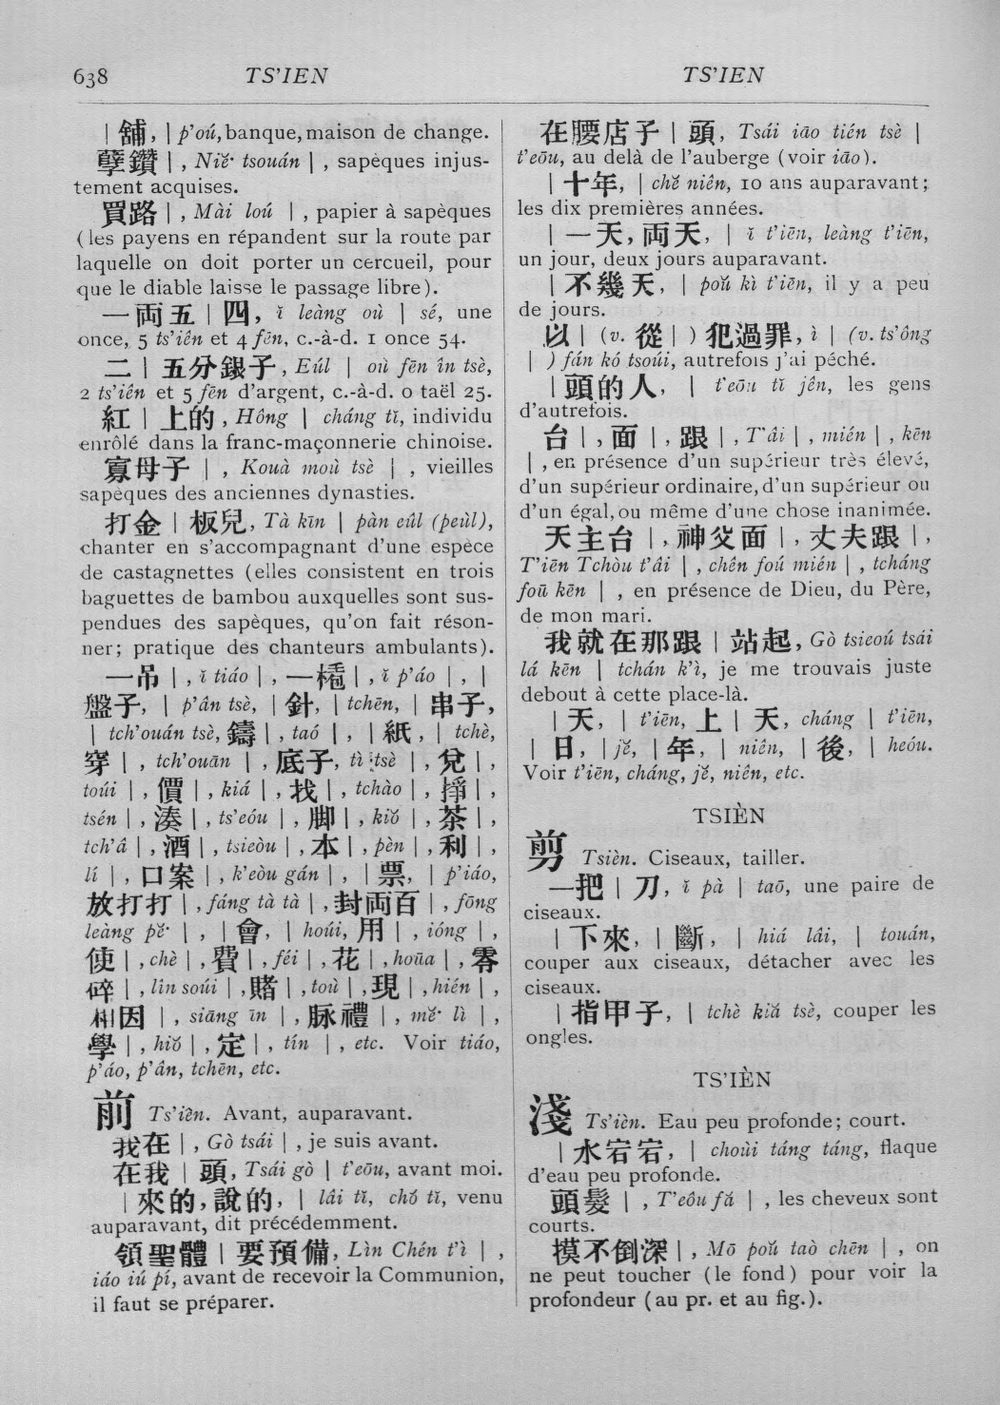 638 TS’IEN TS’IEN
| 舖, | p’oú, banque, maison de change.
孽鑽 | , Niě· tsouán | , sapèques injus-
tement acquises.
買路 | , Mài loú | , papier à sapèques
(les payens en répandent sur la route par
laquelle on doit porter un cercueil, pour
que le diable laisse le passage libre).
一両五 | 四, ĭ leàng où | sé, une
once, 5 ts’iên et 4 fēn, c.-à-d. 1 once 54.
二 | 五分銀子, Eúl | où fēn în tsè,
2 ts’iên et 5 fēn d’argent, c.-à-d. 0 taël 25.
紅 | 上的, Hông | cháng tĭ, individu
enrôlé dans la franc-maçonnerie chinoise.
寡母子 | , Kouà moù tsè | , vieilles
sapèques des anciennes dynasties.
打金 | 板兒, Tà kīn | pàn eûl (peùl),
chanter en s’accompagnant d’une espèce
de castagnettes (elles consistent en trois
baguettes de bambou auxquelles sont sus-
pendues des sapèques, qu’on fait réson-
ner; pratique des chanteurs ambulants).
一吊 | , ĭ tiáo | , 一 | , ĭ p’áo | , |
盤子, | p’ân tsè, | 針, | tchēn, | 串子,
| tch’ouán tsè, 鑄 | , taó | , | 紙, | tchè,
穿 | , tch’ouān | , 底子, tì tsè | , 兌 | ,
toúi | , 價 | , kiá | , 找 | , tchào | , 掙 | ,
tsén | , 湊 | , ts’eóu | , 脚 | , kiŏ | , 茶 | ,
tch’â | , 酒 | , tsieòu | , 本 | , pèn | , 利 | ,
lí | , 口案 | , k’eòu gán | , | 票, | p’iáo,
放打打 | , fáng tà tà | , 封両百 | , fōng
leàng pě· | , | 會, | hoúi, 用 | , ióng | ,
使 | , chè | , 費 | , féi | , 花 | , hoūa | , 零
碎 | , lîn soúi | , 賭 | , toù | , 現 | , hién | ,
相因 | , siāng īn | , 脉禮 | , mě· lì | ,
學 | , hiŏ | , 定 | , tín | , etc. Voir tiáo,
p’áo, p’ân, tchēn, etc.
前 Ts’iên. Avant, auparavant.
我在 | , Gò tsái | , je suis avant.
在我 | 頭, Tsái gò | t’eōu, avant moi.
| 來的, 說的, | lâi tĭ, chŏ tĭ, venu
auparavant, dit précédemment.
領聖體 | 要預備, Lìn Chén t’ì | ,
iáo iú pí, avant de recevoir la Communion,
il faut se préparer.
在腰店子 | 頭, Tsái iāo tién tsè |
t’eōu, au delà de l’auberge (voir iāo).
| 十年, | chě niên, 10 ans auparavant;
les dix premières années.
| 一天, 両天, | ĭ t’iēn, leàng t’iēn,
un jour, deux jours auparavant.
| 不幾天, | poŭ kì t’iēn, il y a peu
de jours.
以 | (v. 從 | ) 犯過罪, ì | (v. ts’ông
| ) fán kó tsoúi, autrefois j’ai péché.
| 頭的人, | t’eōu tĭ jên, les gens
d’autrefois.
台 | , 面 | , 跟 | , T’âi | , mién | , kēn
| , en présence d’un supérieur très élevé,
d’un supérieur ordinaire, d’un supérieur ou
d’un égal, ou même d’une chose inanimée.
天主台 | , 神父面 | , 丈夫跟 | ,
T’iēn Tchòu t’âi | , chên foú mién | , tcháng
foū kēn | , en présence de Dieu, du Père,
de mon mari.
我就在那跟 | 站起, Gò tsieoú tsái
lá kēn | tchán k’ì, je me trouvais juste
debout à cette place-là.
| 天, | t’iēn, 上 | 天, cháng | t’iēn,
| 日, | jě, | 年, | niên, | 後, | heóu.
Voir t’iēn, cháng, jě, niên, etc.
TSIÈN
剪 Tsièn. Ciseaux, tailler.
一把 | 刀, ĭ pà | taō, une paire de
ciseaux.
| 下來, | 斷, | hiá lâi, | touán,
couper aux ciseaux, détacher avec les
ciseaux.
| 指甲子, | tchè kiă tsè, couper les
ongles.
TS’IÈN
淺 Ts’ièn. Eau peu profonde; court.
| 水宕宕, | choùi táng táng, flaque
d’eau peu profonde.
頭髮 | , T’eôu fă | , les cheveux sont
courts.
摸不倒深 | , Mō poŭ taò chēn | , on
ne peut toucher (le fond) pour voir la
profondeur (au pr. et au fig.).